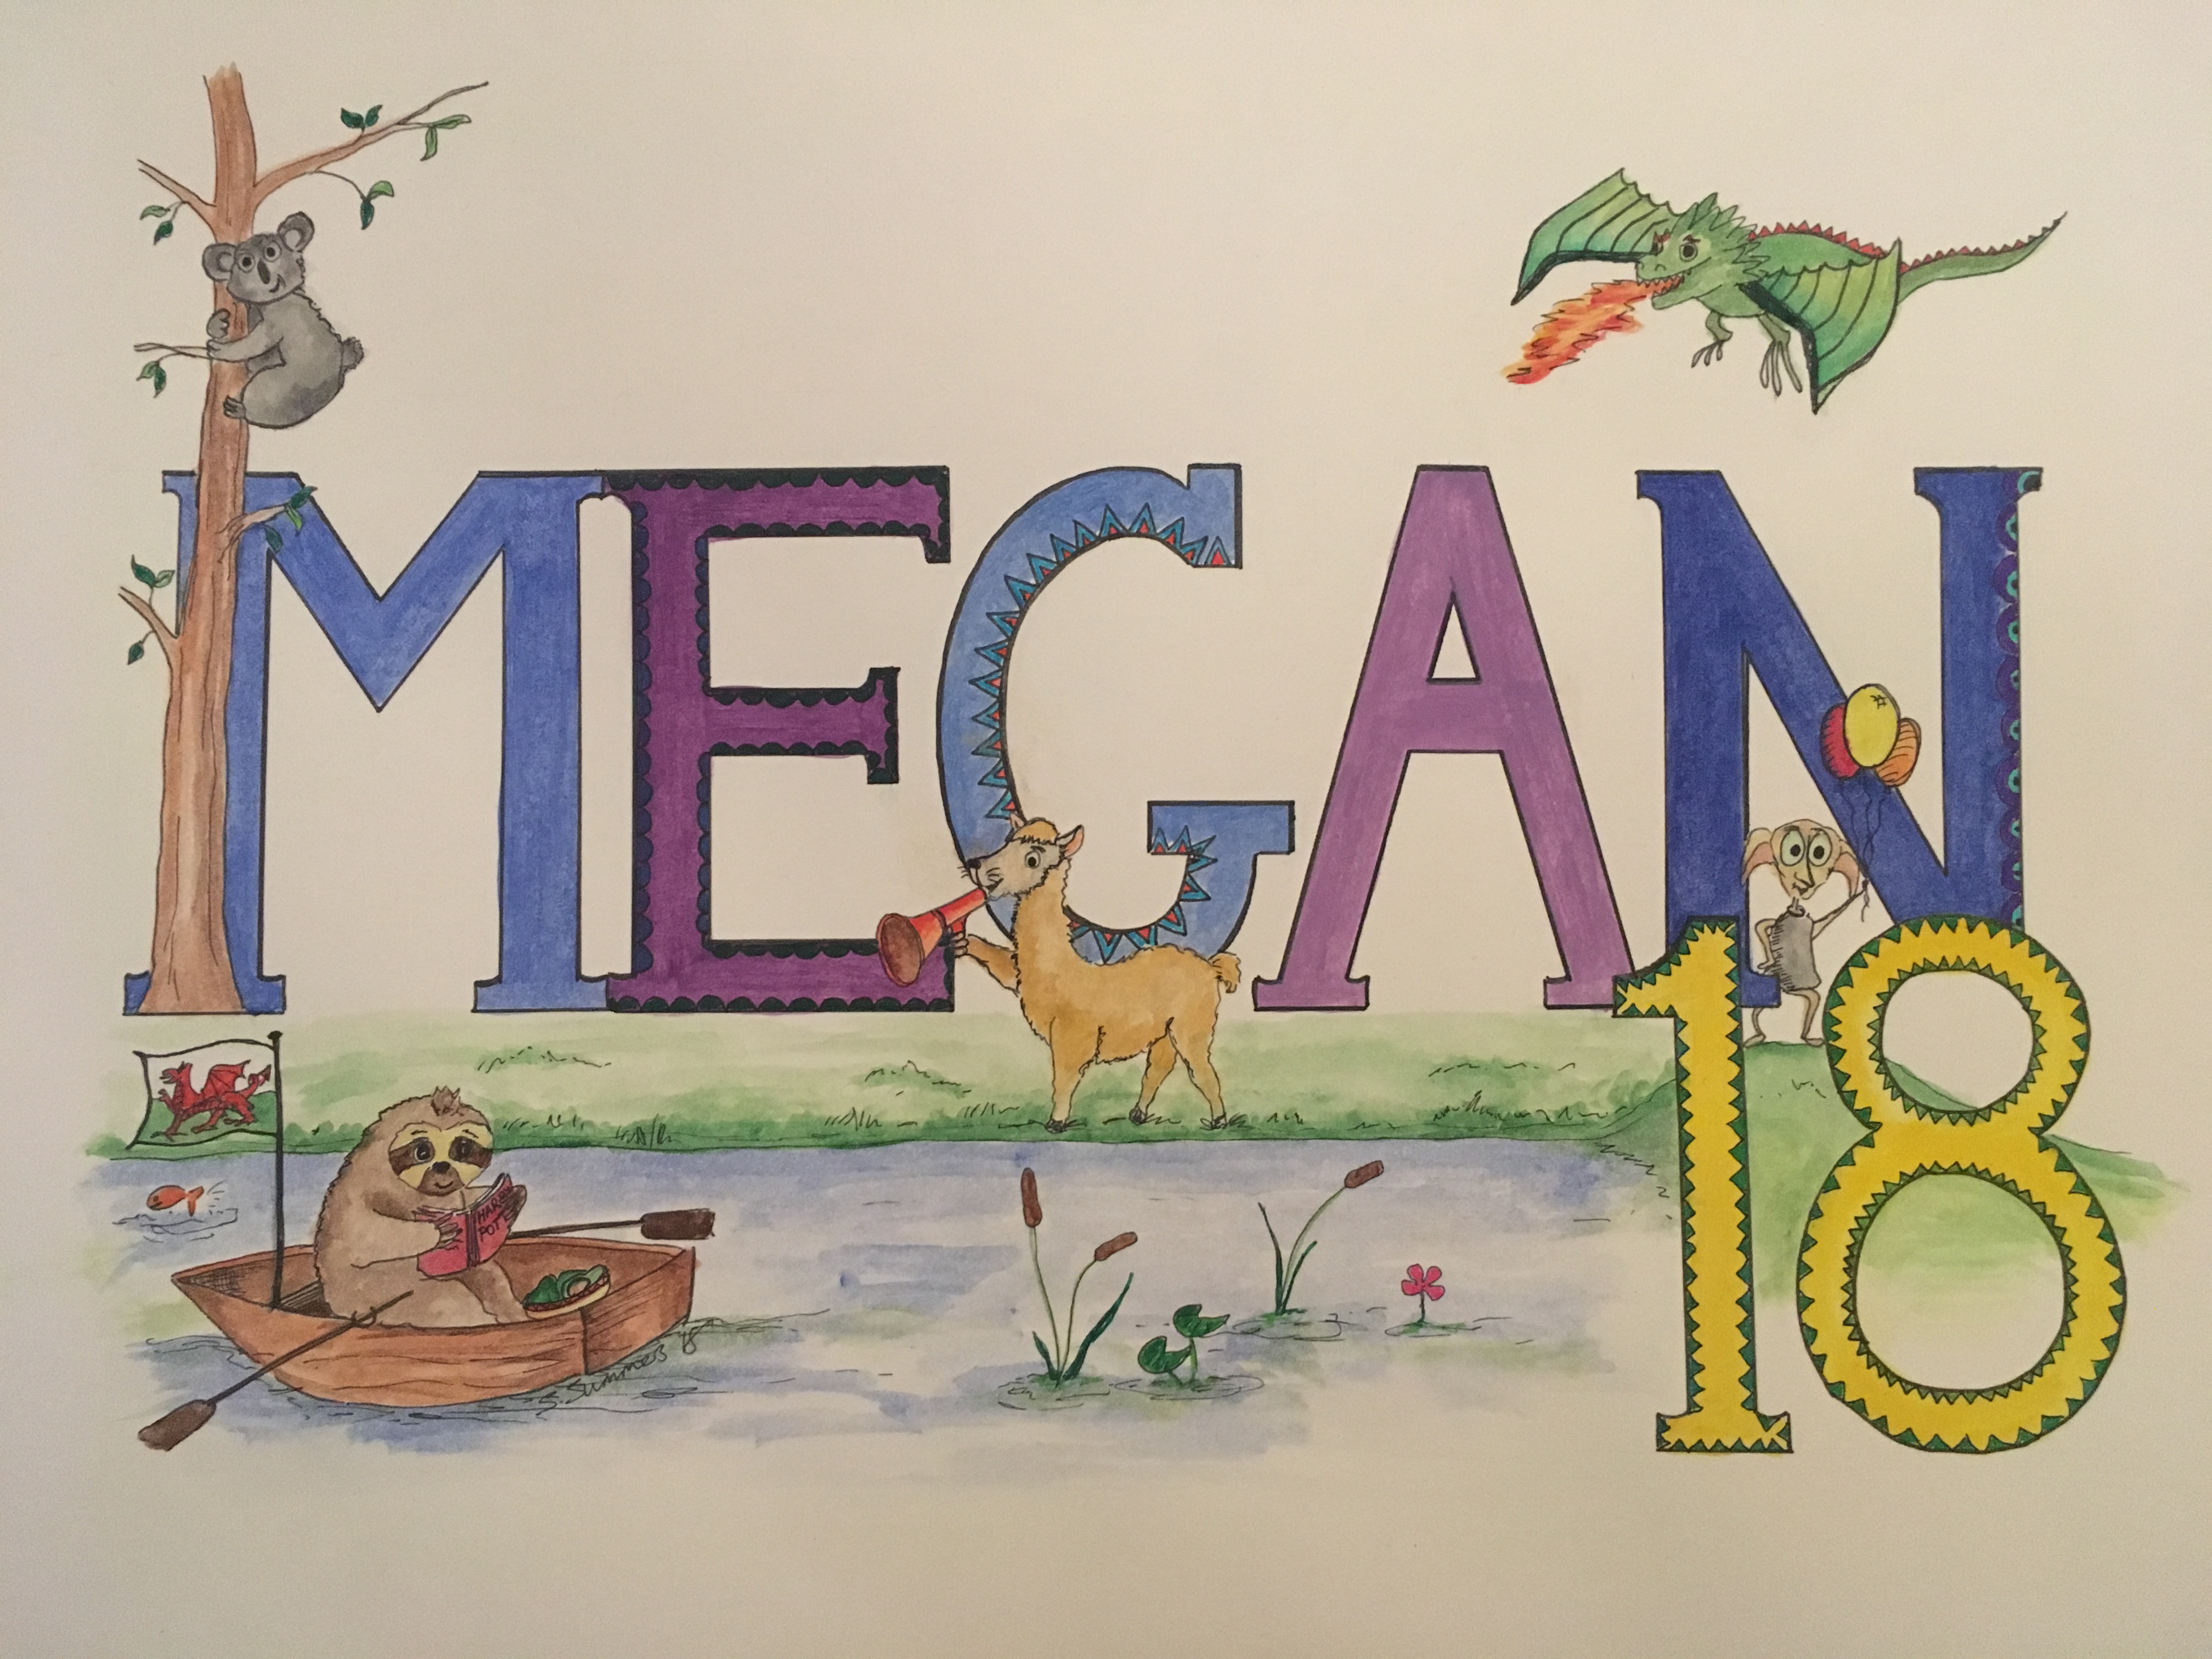 MEGAN
18
HARRY
POT
S. Summers '18